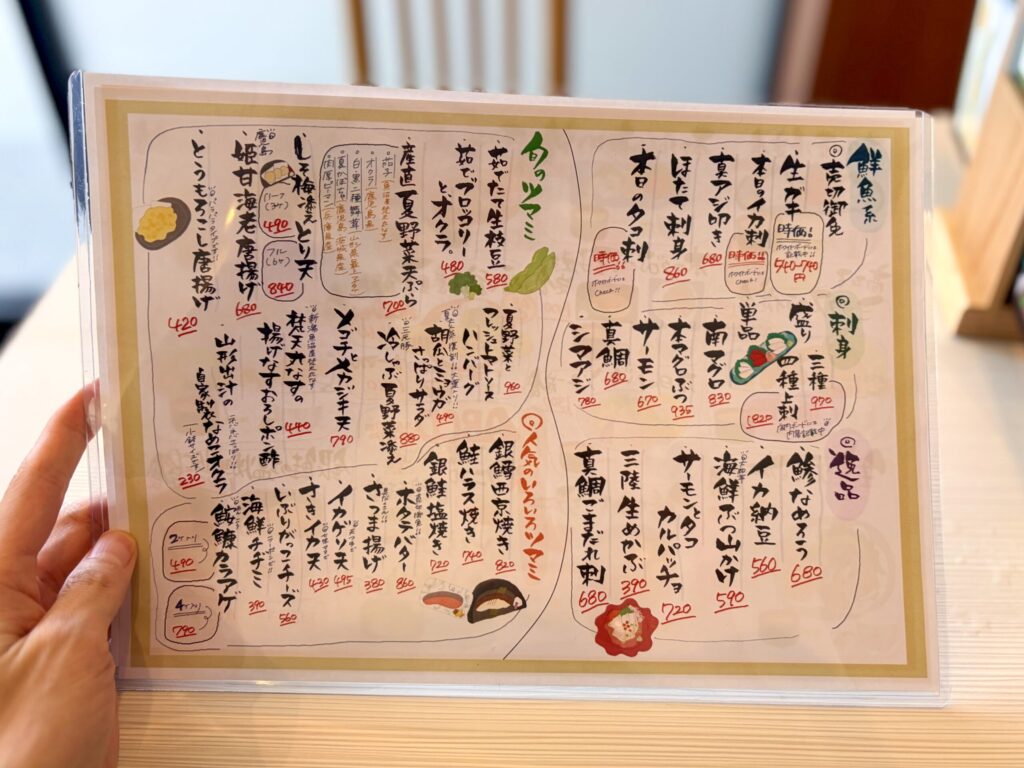 鮮魚系
◎売切御免
・生ガキ
時価!!
540-740円
・本日イカ刺
時価!!
・真アジ叩き
680
・ほたて刺身
860
・本日のタコ刺
時価!!
ホワイトボードに
Check!!
◎刺身
盛り
三種
970
四種上刺
1820
単品
・南マグロ
830
・本マグロぶつ
935
・サーモン
670
・真鯛
680
・シマアジ
780
◎逸品
・鯵なめろう
680
・イカ納豆
560
・海鮮ぶつ山かけ
590
・サーモンとタコ
カルパッチョ
720
・三陸生めかぶ
390
・真鯛ごまだれ刺
680
旬のツマミ
・茹でたて生枝豆
580
・茹でブロッコリー
とオクラ。
480
・産直夏野菜天ぷら
700
茄子
オクラ 鹿児島県
白黒二種舞茸
夏かぼちゃ
肉厚ピーマン
・しそ梅添えとり天
ハーフ
(3ヶ)
490
フル
(6ヶ)
890
鹿児島
・姫甘海老唐揚げ
680
・とうもろこし唐揚げ
420
・夏野菜と
フレッシュトマトソース
ハンバーグ
960
・胡瓜とミョウガ
さっぱりサラダ
490
・冷しゃぶ夏野菜添え
880
・メゴチとカジキ天
790
・梵天丸なすの
揚げなすおろしポン酢
440
・山形出汁の
自家製なめ茸オクラ
230
◎人気のいろいろツマミ
・銀鱈西京焼き
820
・鮭ハラス焼き
740
・銀鮭塩焼き
720
・ホタテバター
860
・さつま揚げ
380
・イカゲソ天
495
・さきイカ天
430
・いぶりがっこチーズ
560
・海鮮チヂミ
390
・鮟鱇カラアゲ
2ヶ入り
490
4ヶ入り
790